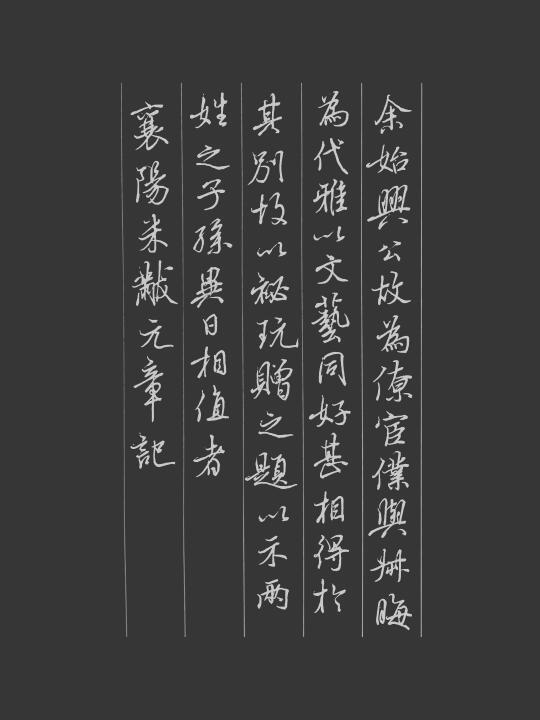 余始興公故為僚宦僕與叔晦
為代雅以文藝同好甚相得於
其別故以祕玩贈之題以示兩
姓之子孫異日相值者
襄陽米黻元章記